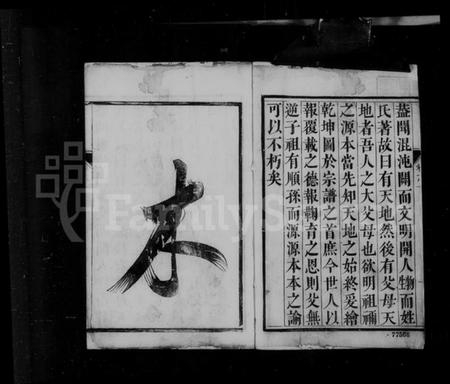 蓋聞混沌闢而文明開人物而姓
氏著故曰有天地然後有父母天
地者吾人之大父母也欲明祖禰
之源本當先知天地之始終爰繪
乾坤圖於宗譜之首庶今世人以
報覆載之德報鞠育之恩則父無
逆子祖有順孫而源源本本之論
可以不朽矣
本
FamilyS
77566